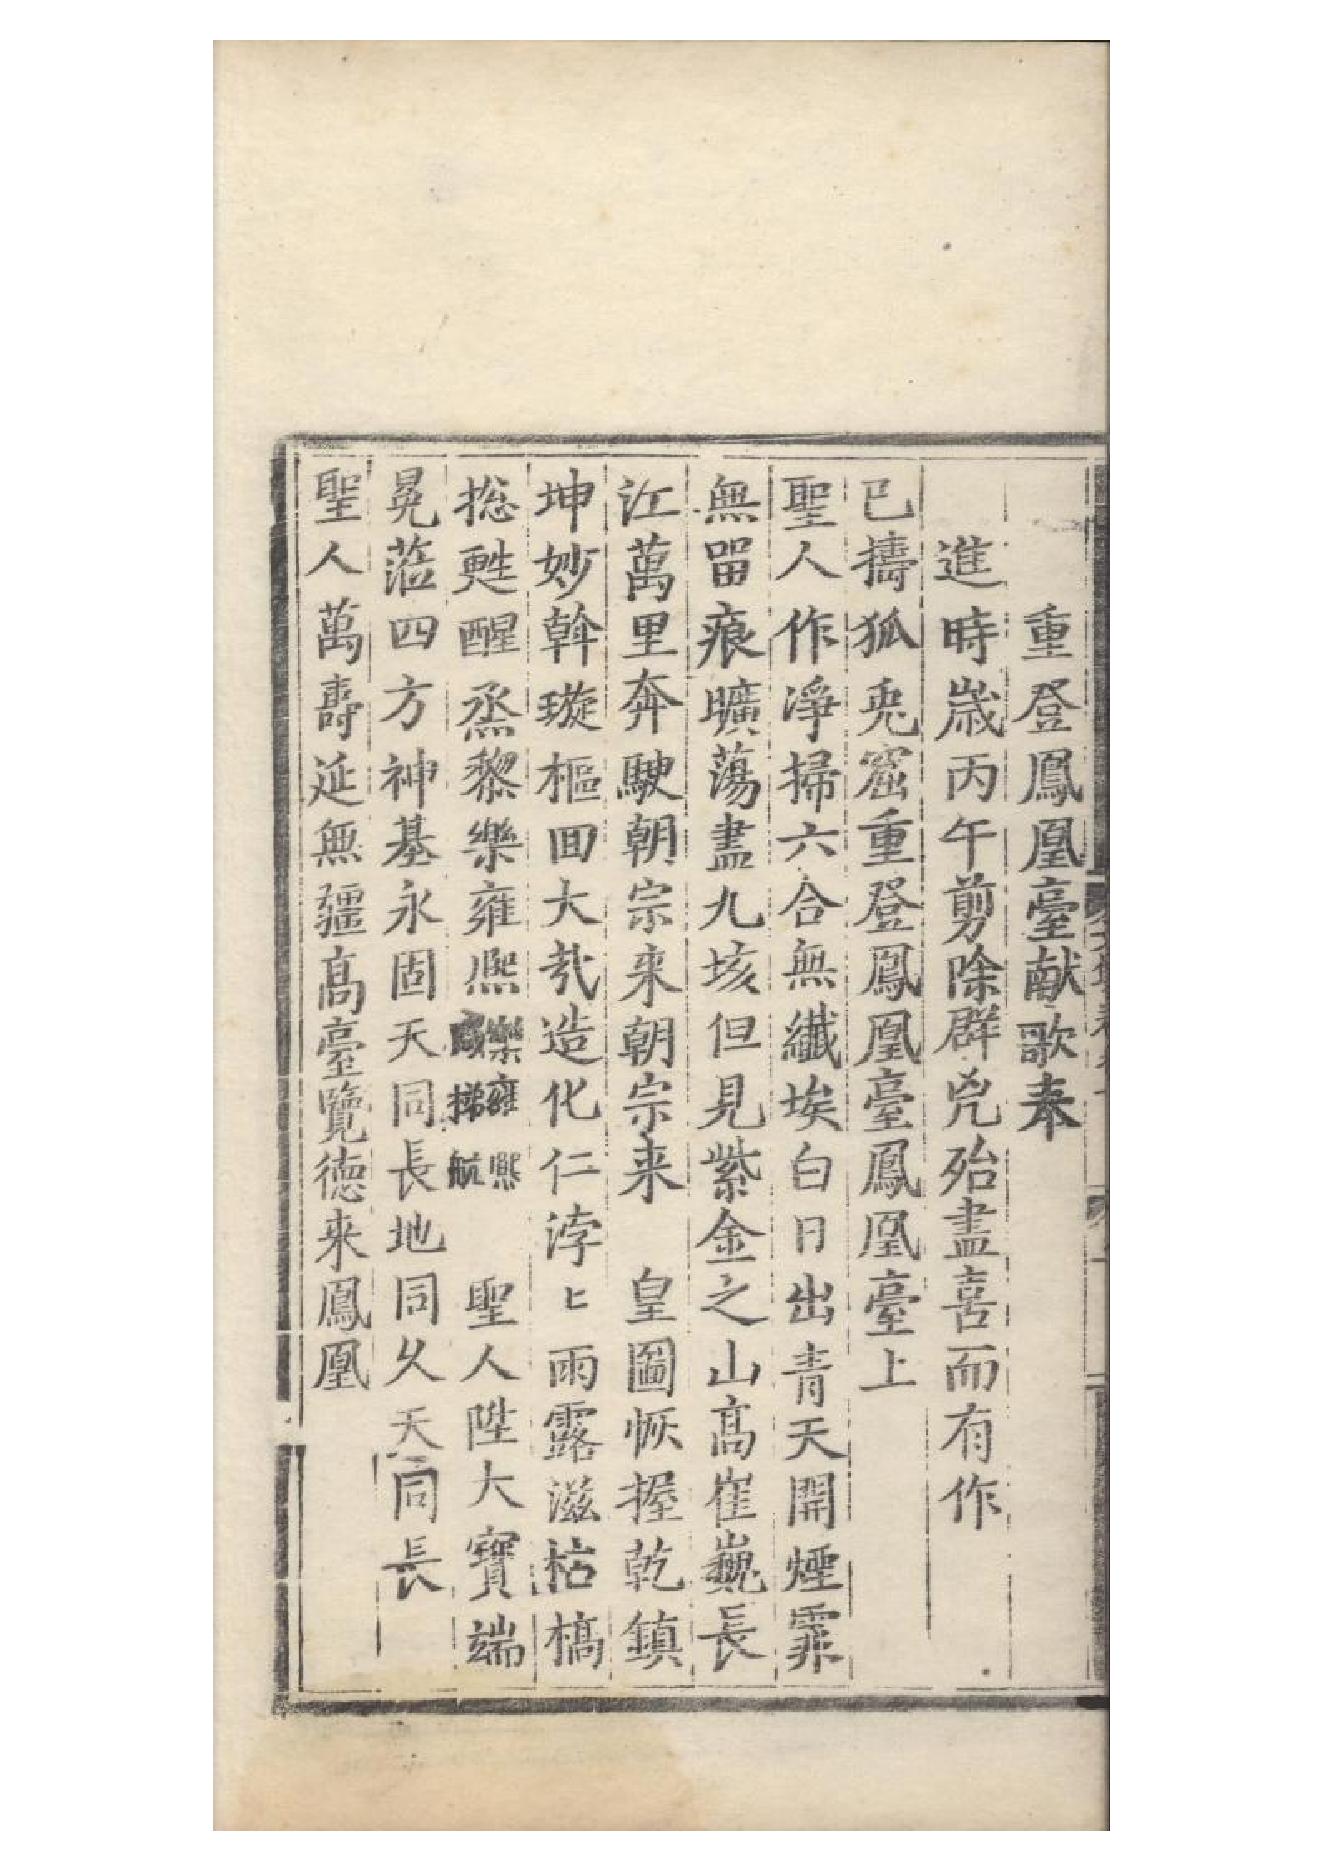 重登鳳凰臺献歌奉
進時歳丙午剪除群兇殆盡喜而有作
已擣狐兎窟重登鳳凰臺鳳凰臺上
聖人作淨掃六合無纖埃白日出青天開煙霏
無畱痕曠蕩盡九垓但見紫金之山髙崔巍長
江萬里奔駛朝宗來朝宗来　皇圖恢握乾鎮
坤妙斡璇樞回大哉造化仁浡〻雨露滋枯槁
捴甦醒烝黎樂雍熈樂雍熈梯航　聖人陞大寶端
冕蒞四方神基永固天同長地同久天同長
聖人萬壽延無疆髙臺覽德来鳳凰